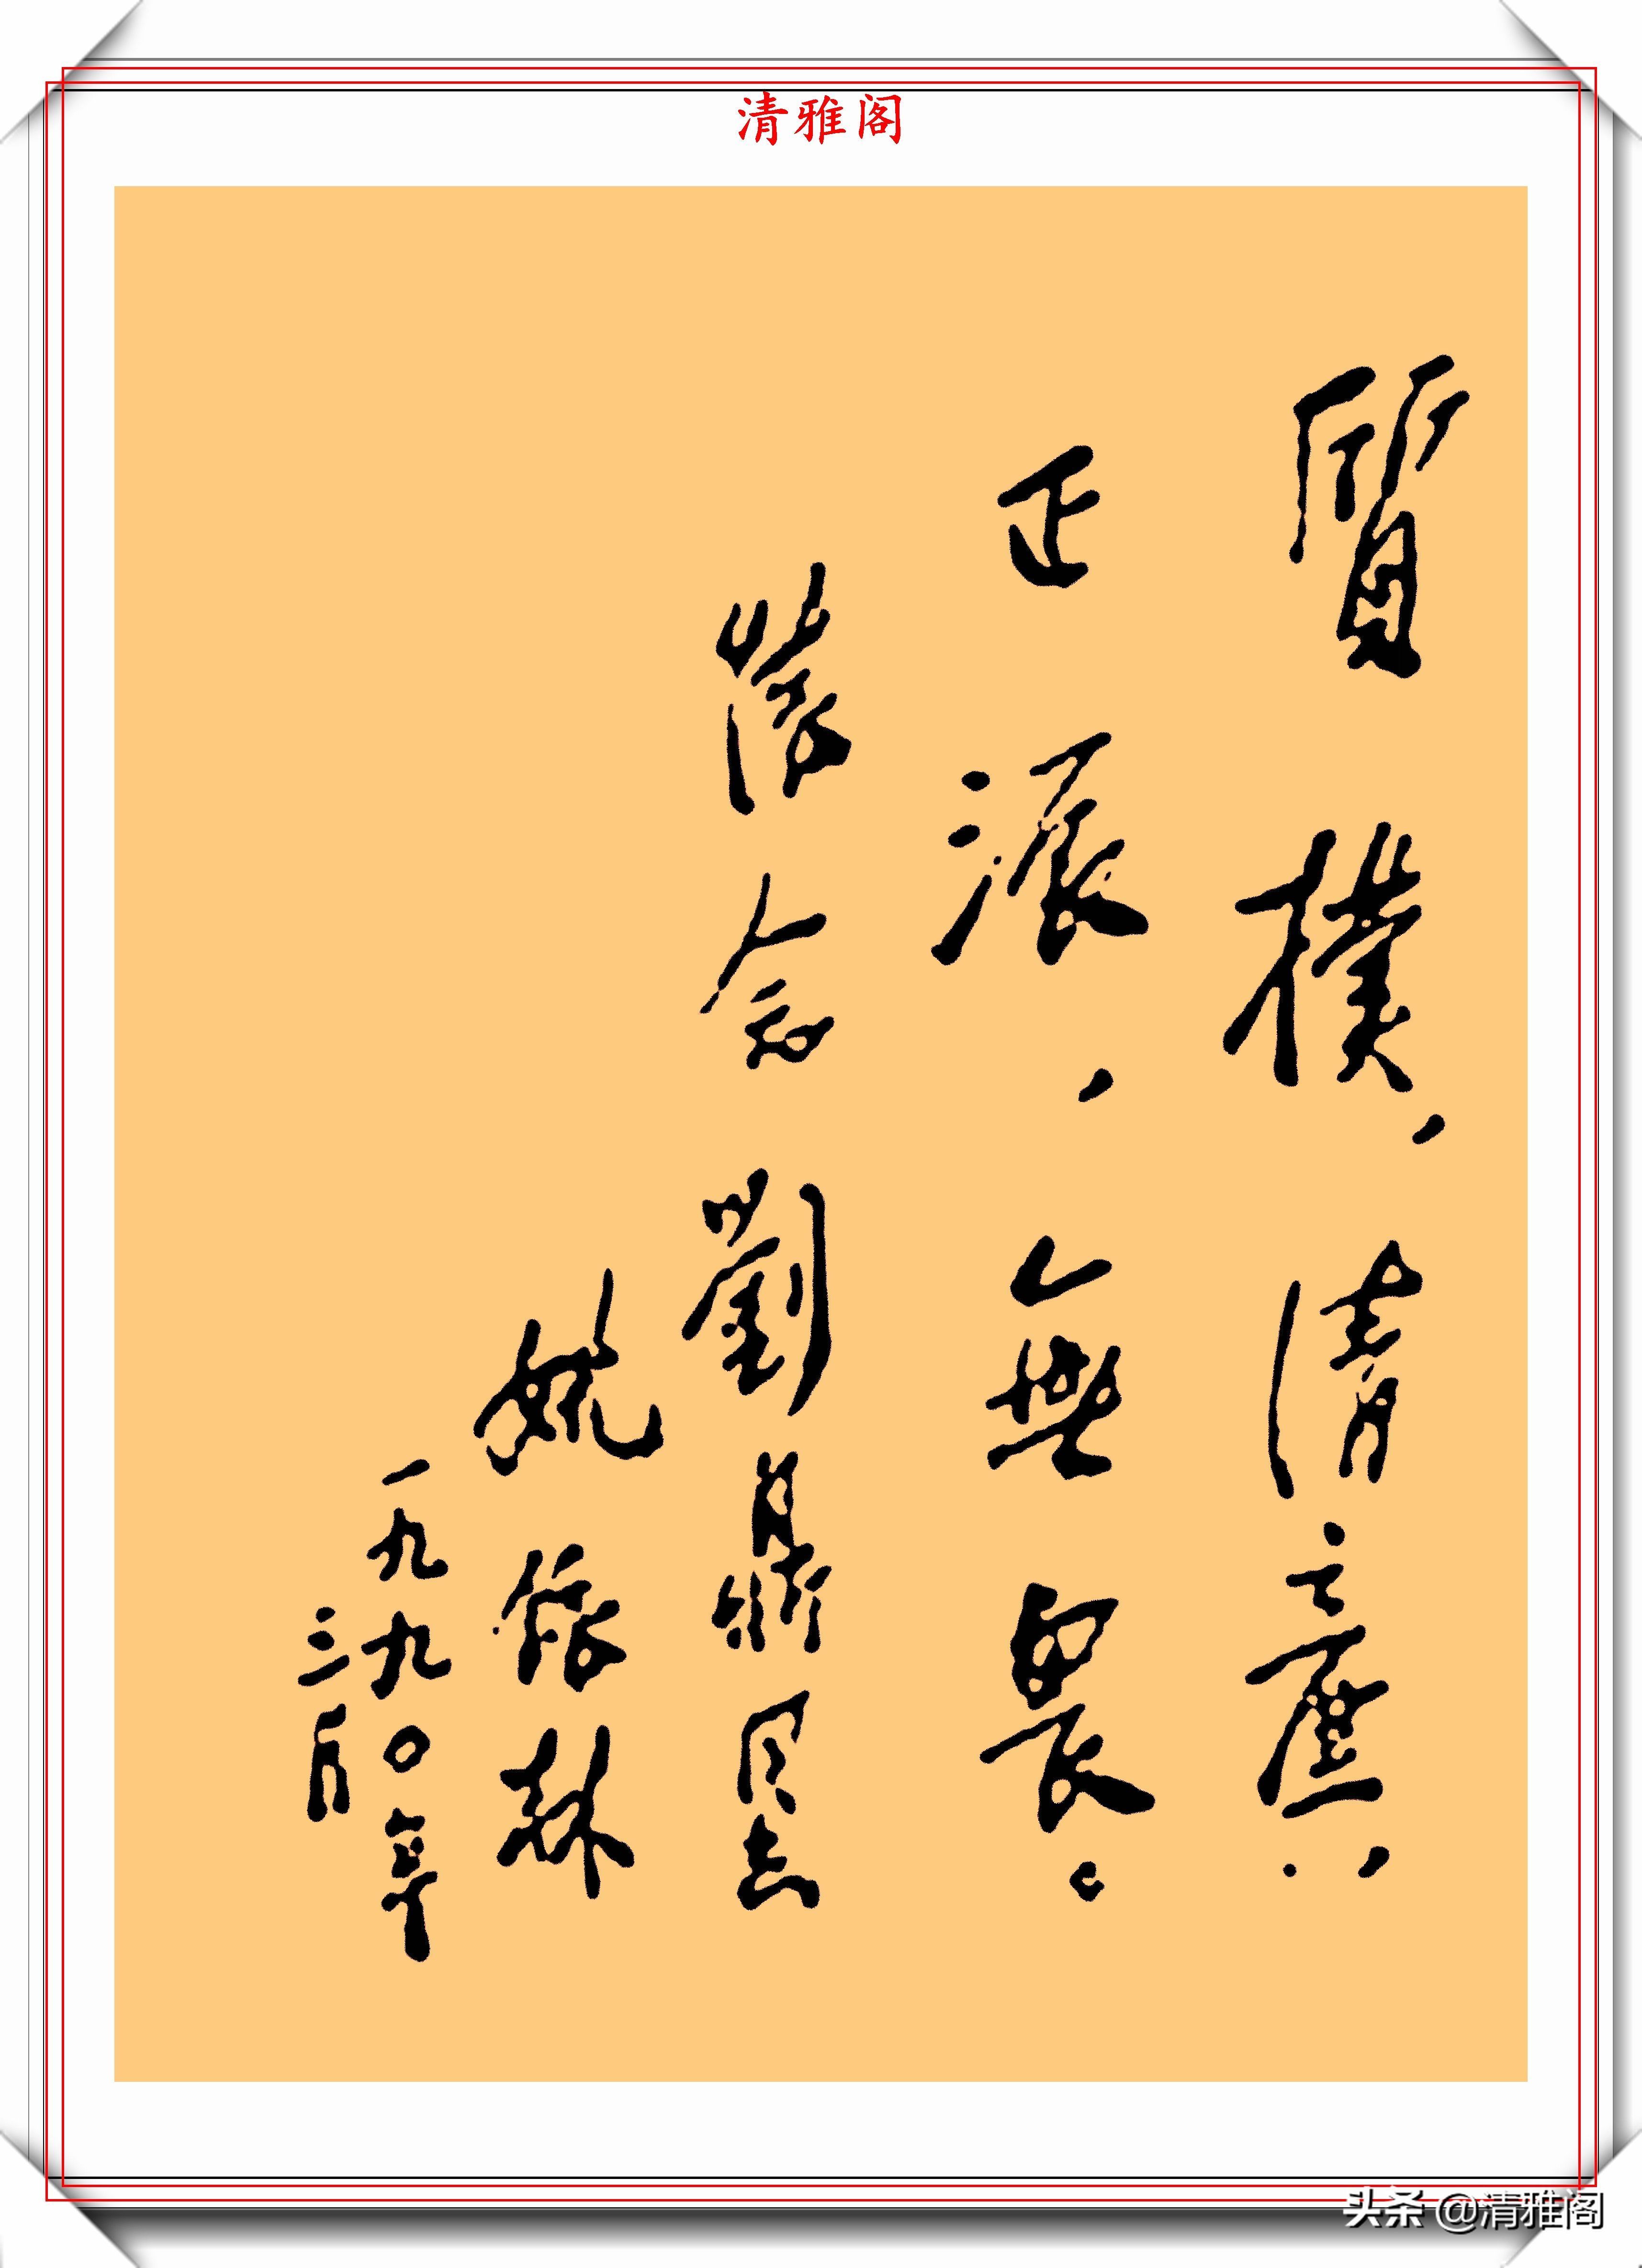 清雅阁
質樸，清廉，
正派，無畏。
懷念劉鼎同志
姚依林
一九九〇年
三月
头条 @清雅阁